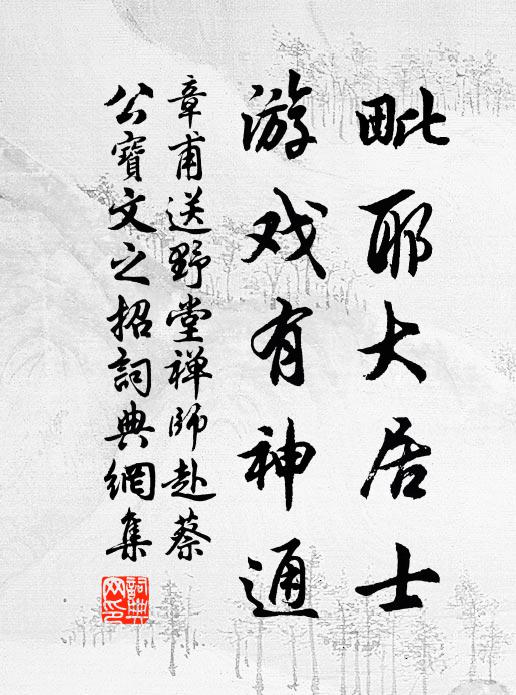 毗耶大居士
游戏有神通
章甫送野堂禅師赴蔡
公寶文之招詞典網集